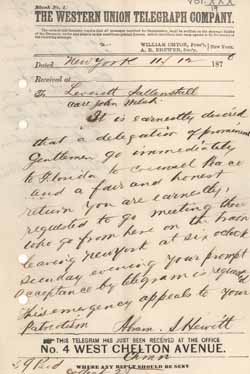 Blank No. 1.
THE WESTERN UNION TELEGRAPH COMPANY.
WILLIAM ORTON, Pres't
A. R. BREWER, Sec'y.
New York.
Dated New York 11/12 1876
Received at
To Leverett Saltonstall
Care John Welsh
It is earnestly desired
that a delegation of prominent
Gentlemen go immediately
to Florida to Counsel Peace
and a fair and honest
return You are earnestly
requested to go meeting those
who go from here on the train
leaving New York at six oclock
Sunday evening Your prompt
acceptance by telegram is requested
this emergency appeals to your
Patriotism
Abram S Hewitt
THIS TELEGRAM HAS JUST BEEN RECEIVED AT THE OFFICE
No. 4 WEST CHELTON AVENUE.
WHERE ANY REPLY SHOULD BE SENT